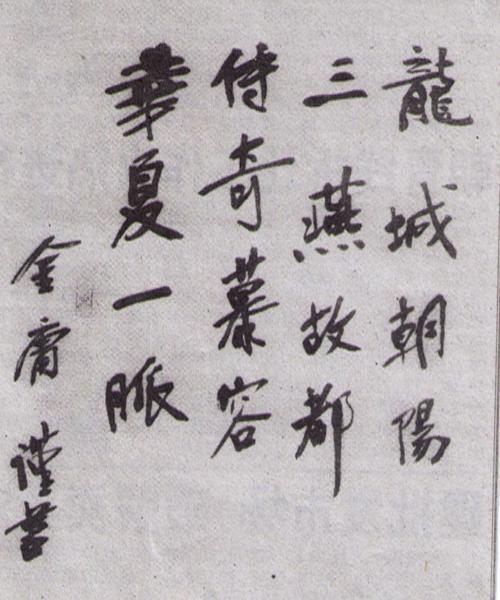 龍城朝陽
三燕故都
傳奇慕容
華夏一脈
金庸 謹書